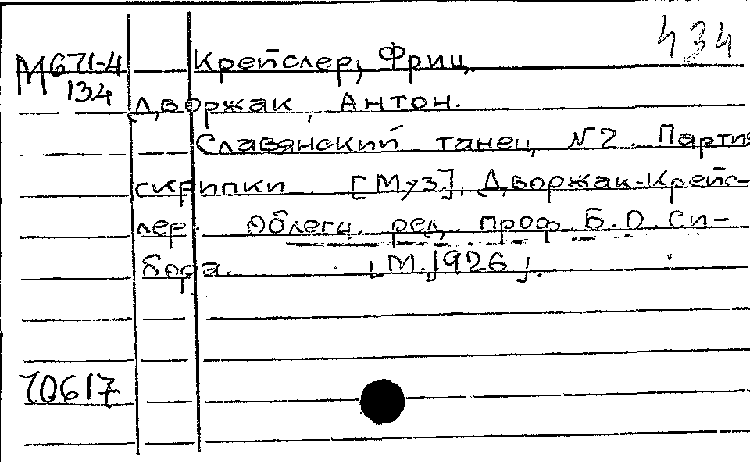 434
М671-4 Крейслер, Фриц
134
Дворжак, Антон.
Славянский танец № 2. Партия
скрипки. [Муз.], Дворжак-Крейс-
лер. Облегч. ред. проф. Б.О. Си-
бора. [М. 1926].
70617